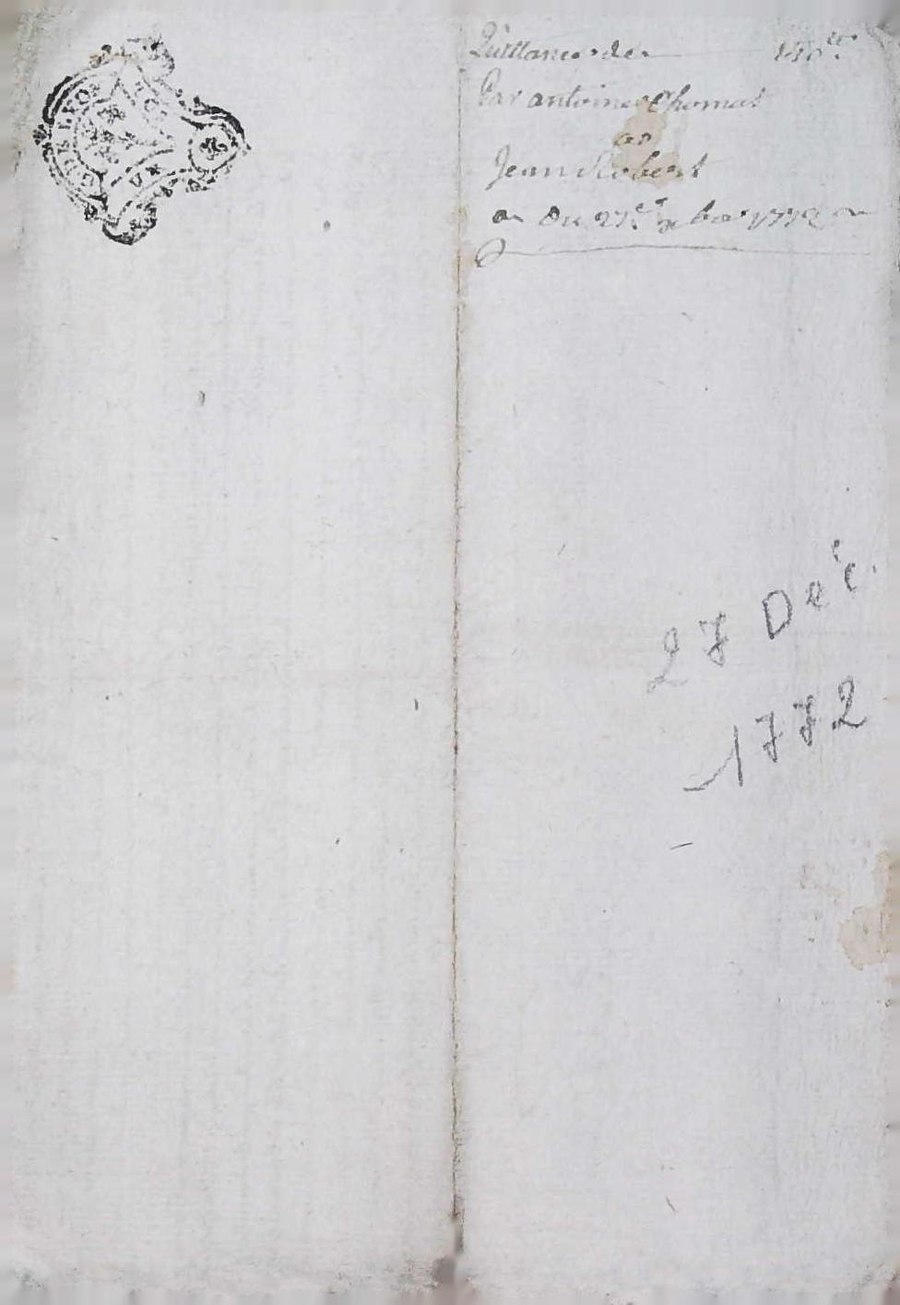 Quittance de
Par antoine Chomat
a
Jean Robert
Du 27e Xbre 1772
27 Déc.
1772